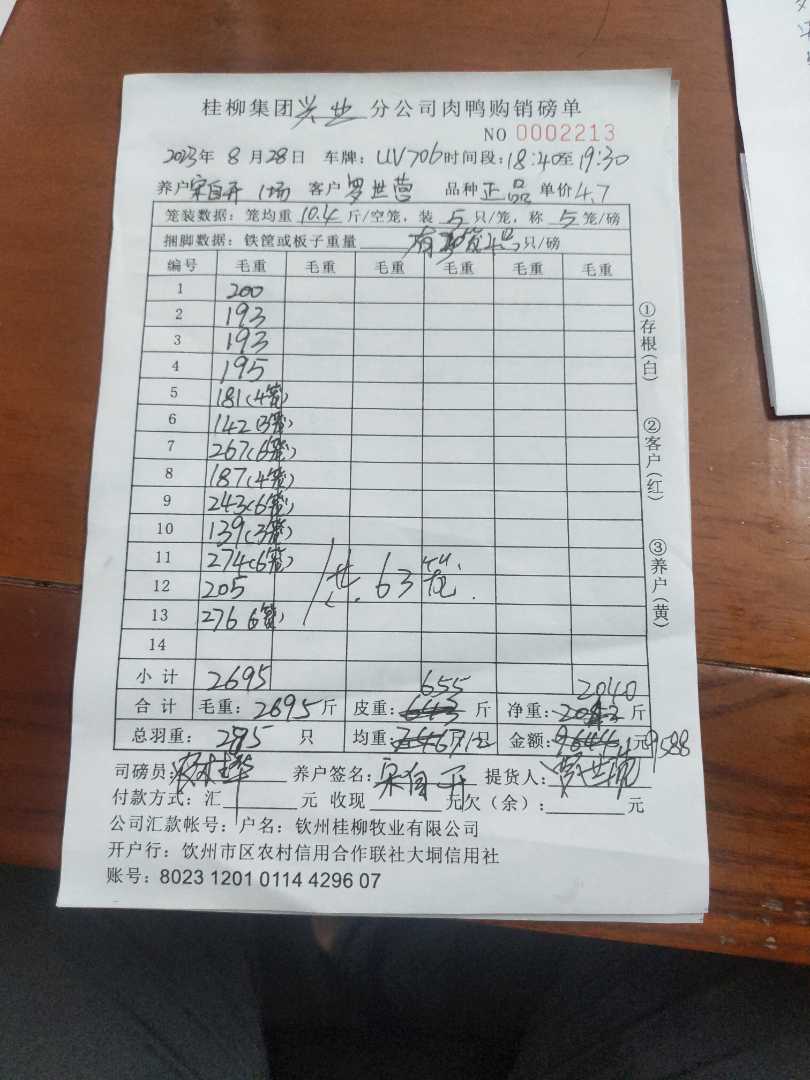 桂柳集团兴业分公司肉鸭购销磅单
NO 0002213
2023年 8月28日 车牌：UV706 时间段：18:40至19:30
养户宋自开 1场 客户罗世营 品种正品 单价4.7
笼装数据：笼均重 10.4 斤/空笼，装 5 只/笼，称 5 笼/磅
捆脚数据：铁筐或板子重量 只/磅
编号 毛重 毛重 毛重 毛重 毛重 毛重
1 200
2 193
3 193
4 195
5 181(4笼)
6 142(3笼)
7 267(6笼)
8 187(4笼)
9 243(6笼)
10 139(3笼)
11 274(6笼)
12 205
13 276 6笼)
共.63笼.
14
小计 2695 655 2040
合计 毛重：2695斤 皮重：643 斤 净重： 斤
总羽重： 295 只 均重 金额：9644元 9588
司磅员： 养户签名：宋自开 提货人：
付款方式：汇 元 收现 元欠（余）： 元
公司汇款帐号：户名：钦州桂柳牧业有限公司
开户行：饮州市区农村信用合作联社大垌信用社
账号：8023 1201 0114 4296 07
①存根(白)
②客户(红)
③养户(黄)